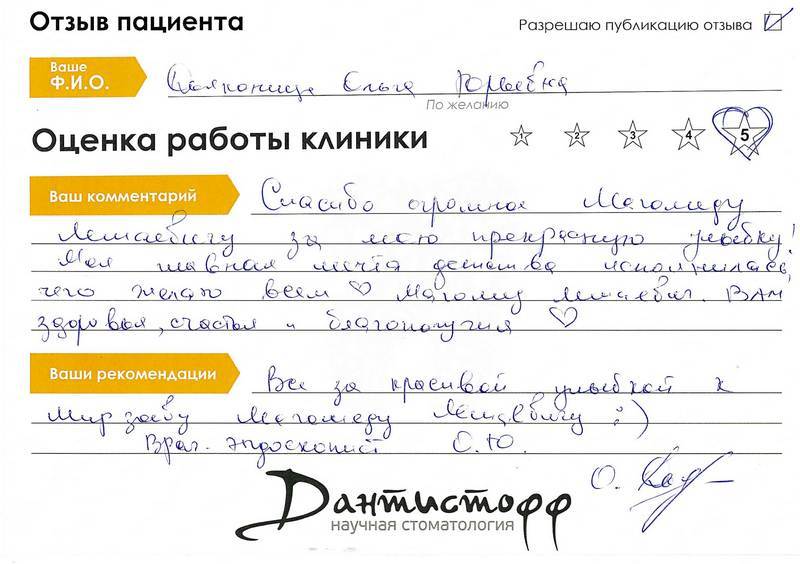 Отзыв пациента
Разрешаю публикацию отзыва
Ваше
Ф.И.О.
Ольга Юрьевна
По желанию
Оценка работы клиники
1 2 3 4 5
Ваш комментарий
Спасибо огромное Магомеду
за мою прекрасную улыбку!
Моя главная мечта детства исполнилась,
чего желаю всем ♡ Магомед ВАМ
здоровья, счастья и благополучия ♡
Ваши рекомендации
Все за красивой улыбкой к
Мирзоеву Магомеду :)
Врач-эндоскопист О.Ю.
Дантистофф
научная стоматология